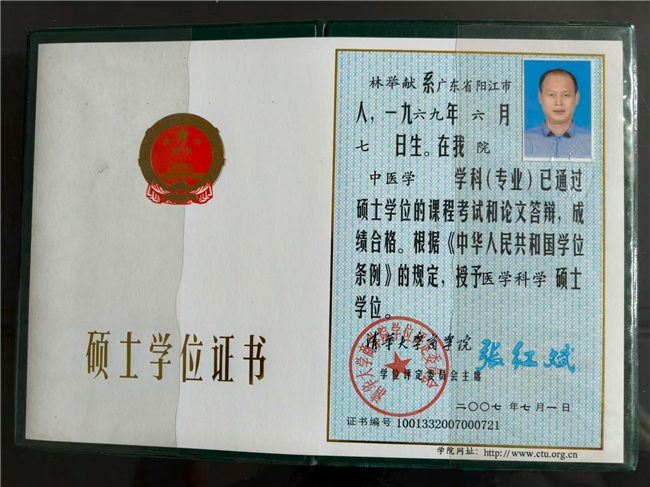 硕士学位证书
林举献 系广东省阳江市
人，一九六九年 六 月
七 日生。在我 院
中医学 学科（专业）已通过
硕士学位的课程考试和论文答辩，成
绩合格。根据《中华人民共和国学位
条例》的规定，授予医学科学 硕士
学位。
清华大学商学院
张红斌
学位评定委员会主席
二〇〇七年七月一日
证书编号 1001332007000721
学院网址：http://www.ctu.org.cn